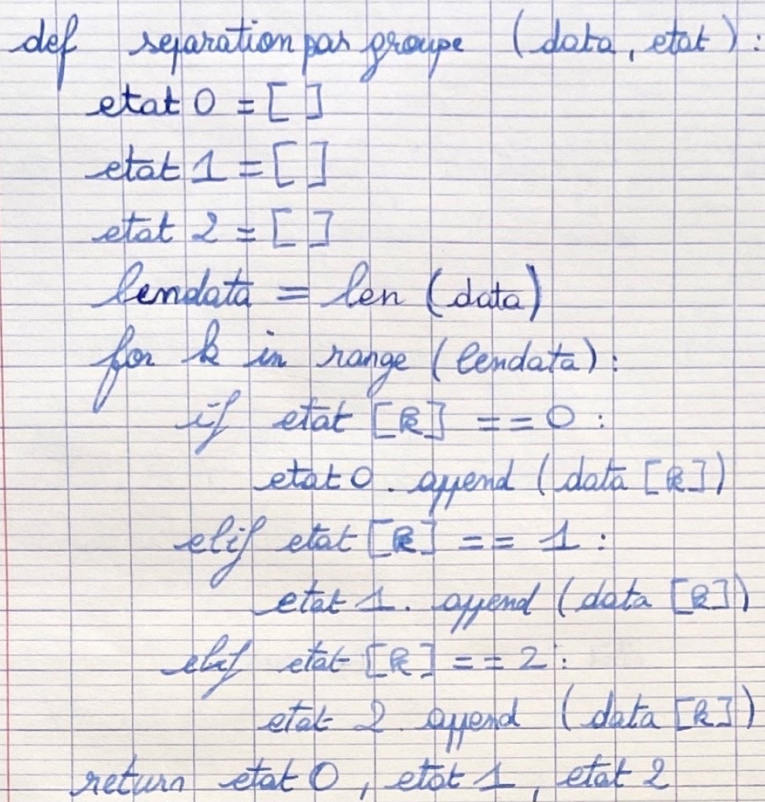 def separationpargroupe (data, etat):
etat0 = []
etat1 = []
etat2 = []
lendata = len (data)
for k in range (lendata):
if etat [k] == 0:
etat0.append (data [k])
elif etat [k] == 1:
etat1.append (data [k])
elif etat [k] == 2:
etat2.append (data [k])
return etat0, etat1, etat2